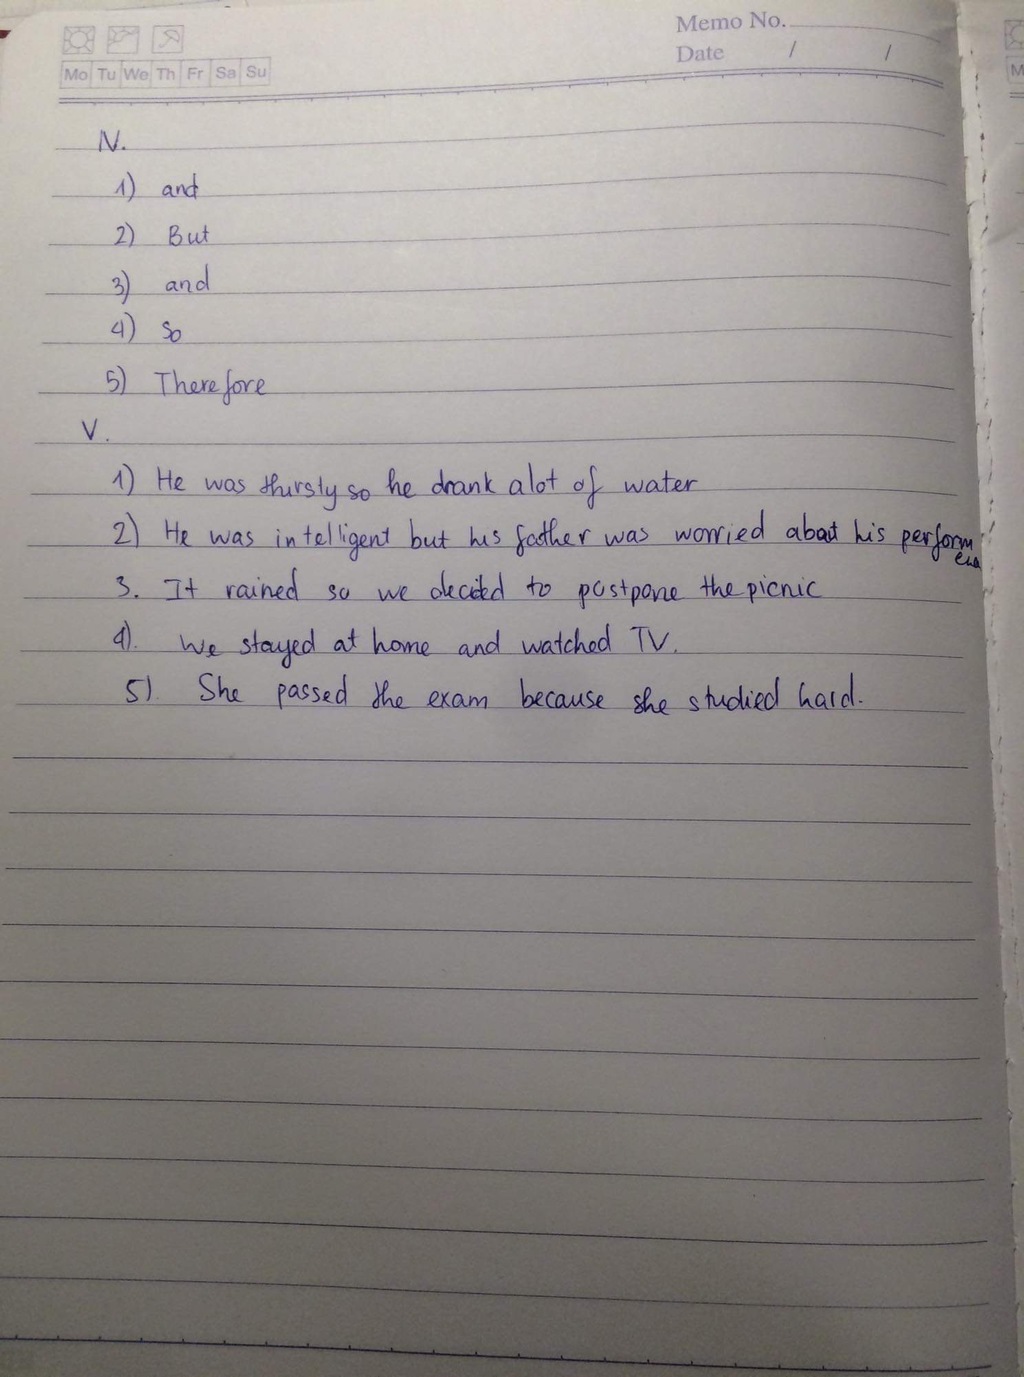 Memo No.
Date / /
Mo Tu We Th Fr Sa Su
IV.
1) and
2) But
3) and
4) So
5) Therefore
V.
1) He was thirsty so he drank alot of water
2) He was intelligent but his father was worried about his perform
3. It rained so we decided to postpone the picnic
4). We stayed at home and watched TV.
5). She passed the exam because she studied hard.